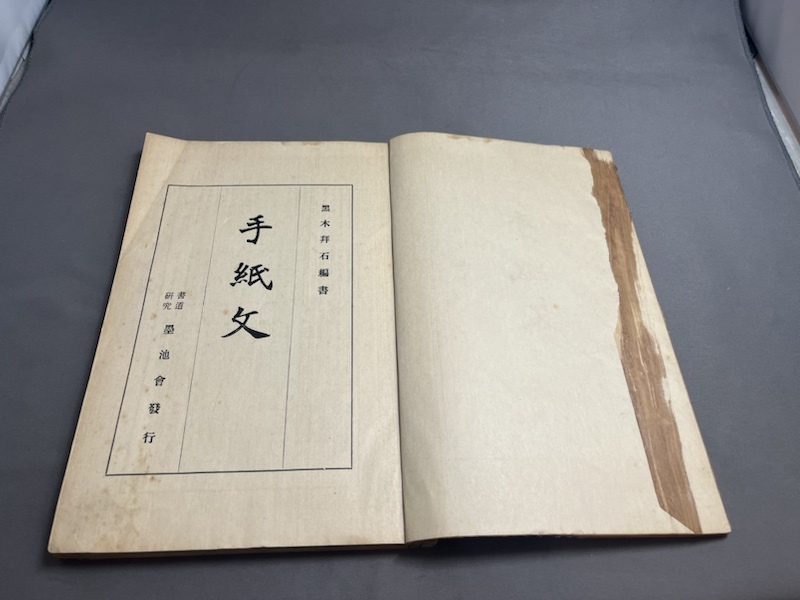 黑木拜石編書
手紙文
書道
研究
墨池會發行